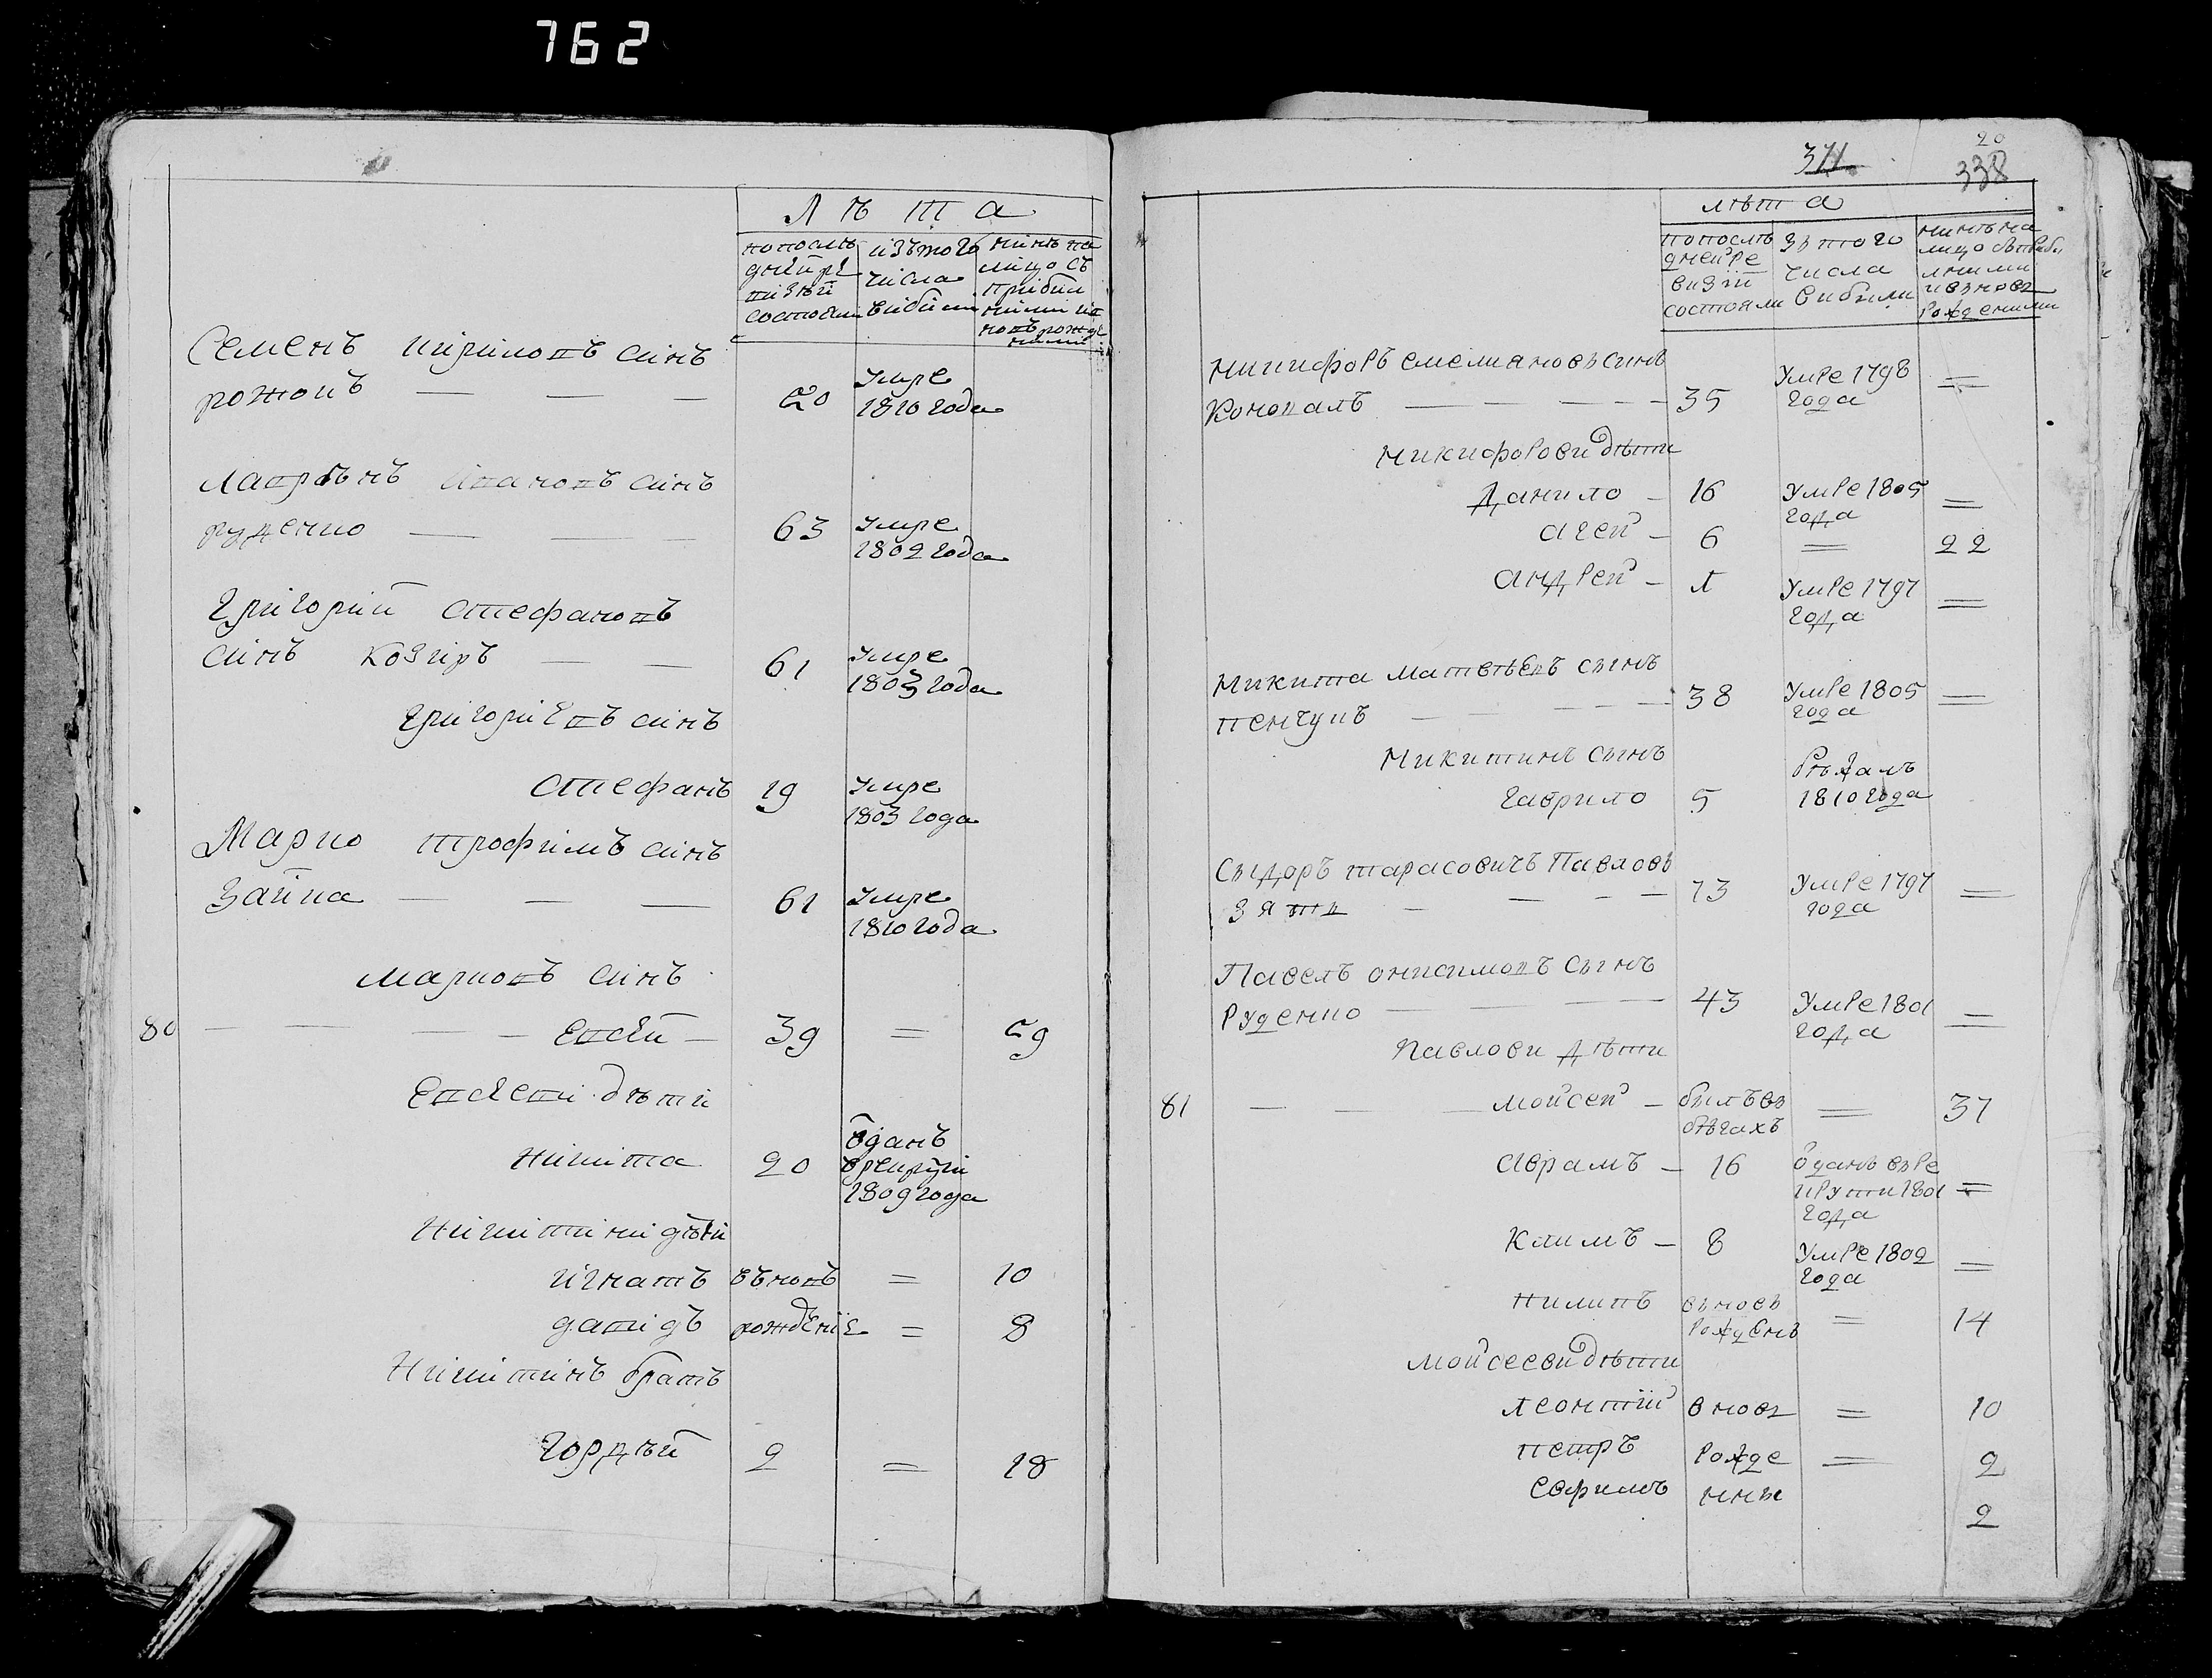 762
Л ѣ т а
по послѣ
дней ре
визій
состояли
изъ того
числа
вибили
нинѣ на
лицо съ
прибил
ними и в
новъ рожде
ними
Семенъ Кириловъ синъ
рожокъ — — — 50 умре
1810 года
Лаврѣнъ Ивановъ синъ
руденко — — — 63 умре
1802 года
Григорий Стефановъ
синъ козиръ — — 61 умре
1803 года
Григориевъ синъ
Стефанъ 19 умре
1803 года
Марко трофимъ синъ
Зайка — — — 61 умре
1810 года
Марковъ синъ
80 — — — — Евсей — 39 = 59
Евсееви дѣти
Никита 20 ѿданъ
врекрути
1809 года
Никитини дѣти
игнатъ въновъ = 10
давидъ рождение = 8
Никитинъ братъ
гордѣй 2 = 18
371 20
338
лѣта
по послѣ
дней ре
визіи
состояли
зъ того
числа
вибили
нинѣ на
лицо съ приби
лними
и вновь
рожденими
Никифоръ емелияновъ синъ
Коновалъ — — — — 35 Умре 1798
года =
Никифорови дѣти
Данило — 16 Умре 1805
года =
агей — 6 = 22
андрей — 1 Умре 1797
года =
Никита Матвѣевъ сынъ
пенчукъ — — — — 38 Умре 1805
года =
Никитинъ сынъ
гаврило 5 бѣжалъ
1810 года
Сыдоръ тарасовичъ Павловъ
зять — — — — 73 Умре 1797
года =
Павелъ онисимовъ сынъ
Руденко — — — — 43 Умре 1801
года =
Павлови дѣти
81 — — — мойсей — билъ въ
бѣгахъ = 37
аврамъ — 16 ѿданъ въре
крути 1801
года =
климъ — 8 Умре 1802
года =
пилипъ вьновь
рожденъ = 14
мойсееви дѣти
леонтий вновь = 10
петръ рожде = 2
ефимъ нны 2